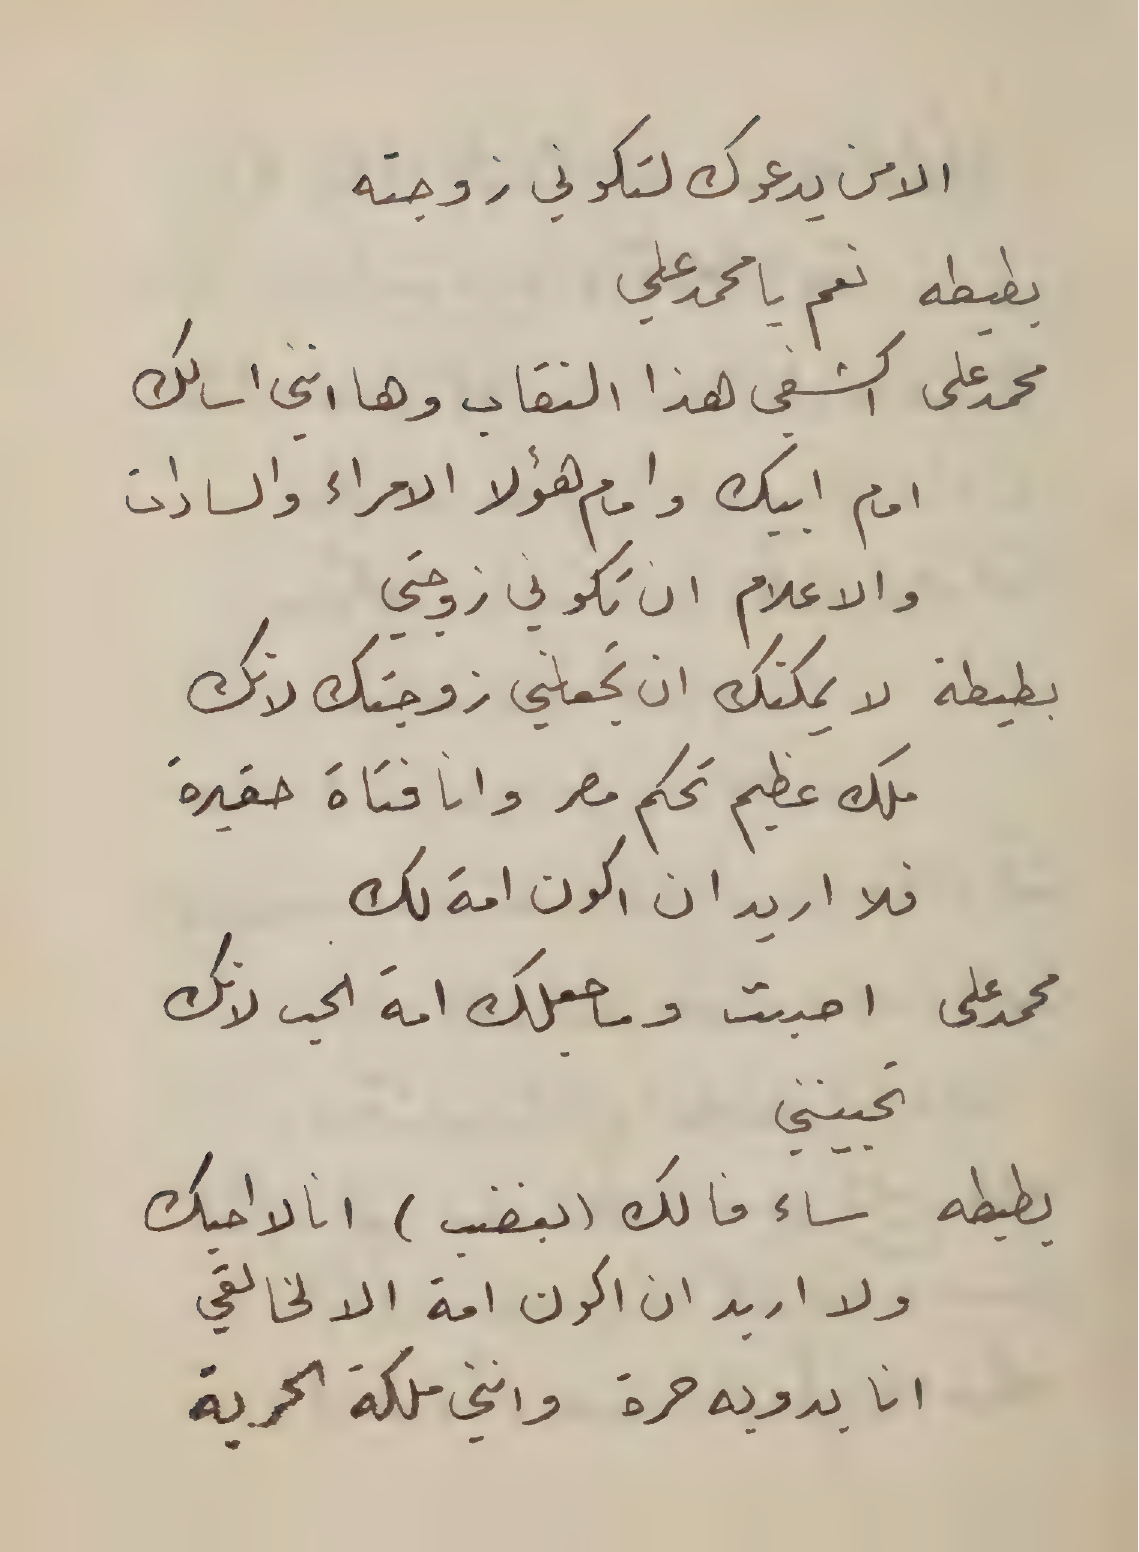 الامن يدعوك لتكوني زوجته
بطيطه نعم يا محمد علي
محمد على اكشفي هذا النقاب وها انني اسالك
امام ابيك وامام هؤلا الامراء والسادات
والاعلام ان تكوني زوجتي
بطيطة لا يمكنك ان تجعلني زوجتك لانك
ملك عظيم تحكم مصر وانا فتاة حقيرة
فلا اريد ان اكون امة لك
محمد على احببت وساجعلك امة الحب لانك
تحبينني
بطيطه ساء فالك (بغضب) انا لا احبك
ولا اريد ان اكون امة الا لخالقي
انا بدويه حرة وانني ملكة الحرية